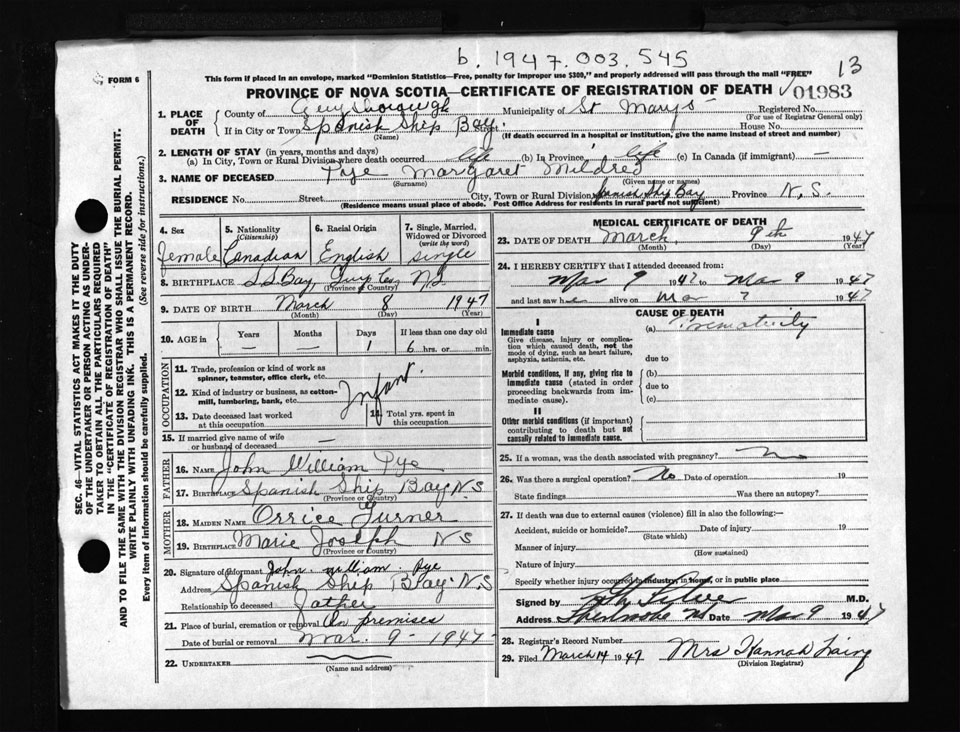 b. 1947.003.545
13
FORM 6
This form if placed in an envelope, marked "Dominion Statistics—Free, penalty for improper use $300," and properly addressed will pass through the mail "FREE"
PROVINCE OF NOVA SCOTIA—CERTIFICATE OF REGISTRATION OF DEATH
01983
1. PLACE OF DEATH
County of Guysborough Municipality of St Marys Registered No.
(For use of Registrar General only)
If in City or Town Spanish Ship Bay. Street House No.
(Name) (If death occurred in a hospital or institution, give the name instead of street and number)
2. LENGTH OF STAY (in years, months and days)
(a) In City, Town or Rural Division where death occurred life (b) In Province life (c) In Canada (if immigrant) —
3. NAME OF DECEASED Pye Margaret Mildred
(Surname) (Given name or names)
RESIDENCE No. Street City, Town or Rural Division Spanish Ship Bay Province N.S.
(Residence means usual place of abode. Post Office Address for residents in rural parts not sufficient)
4. Sex
female
5. Nationality
(Citizenship)
Canadian
6. Racial Origin
English
7. Single, Married, Widowed or Divorced
(write the word)
single
8. BIRTHPLACE S.S. Bay, Guy Co, N.S.
9. DATE OF BIRTH March 8 1947
(Month) (Day) (Year)
10. AGE in
Years Months Days If less than one day old
— — 1 6 hrs. or min.
OCCUPATION
11. Trade, profession or kind of work as spinner, teamster, office clerk, etc.
12. Kind of industry or business, as cotton-mill, lumbering, bank, etc.
Infant.
13. Date deceased last worked at this occupation
14. Total yrs. spent in this occupation
15. If married give name of wife or husband of deceased —
FATHER
16. NAME John William Pye
17. BIRTHPLACE Spanish Ship Bay N S
(Province or Country)
MOTHER
18. MAIDEN NAME Orrice Turner
19. BIRTHPLACE Marie Joseph N S
(Province or Country)
20. Signature of informant John William Pye
Address Spanish Ship Bay N S
Relationship to deceased father
21. Place of burial, cremation or removal On premises
Date of burial or removal Mar. 9 - 1947 -
22. UNDERTAKER
(Name and address)
MEDICAL CERTIFICATE OF DEATH
23. DATE OF DEATH March 9th 1947
(Month) (Day) (Year)
24. I HEREBY CERTIFY that I attended deceased from:
Mar 9 1947 to Mar 9 1947
and last saw h e alive on Mar 1947
CAUSE OF DEATH
I
Immediate cause
Give disease, injury or complication which caused death, not the mode of dying, such as heart failure, asphyxia, asthenia, etc.
(a) Prematurity
due to
Morbid conditions, if any, giving rise to immediate cause (stated in order proceeding backwards from immediate cause).
(b)
due to
(c)
II
Other morbid conditions (if important) contributing to death but not causally related to immediate cause.
25. If a woman, was the death associated with pregnancy? no
26. Was there a surgical operation? No Date of operation 19
State findings Was there an autopsy?
27. If death was due to external causes (violence) fill in also the following:—
Accident, suicide or homicide? Date of injury 19
(State which)
Manner of injury
(How sustained)
Nature of injury
Specify whether injury occurred in industry, in home, or in public place
Signed by M.D.
Address Date Mar 9 1947
28. Registrar's Record Number
29. Filed March 14 1947 Mrs Hannah Laing
(Division Registrar)
SEC. 46—VITAL STATISTICS ACT MAKES IT THE DUTY OF THE UNDERTAKER OR PERSON ACTING AS UNDERTAKER TO OBTAIN ALL THE PARTICULARS REQUIRED IN THE "CERTIFICATE OF REGISTRATION OF DEATH" AND TO FILE THE SAME WITH THE DIVISION REGISTRAR WHO SHALL ISSUE THE BURIAL PERMIT.
WRITE PLAINLY WITH UNFADING INK. THIS IS A PERMANENT RECORD.
Every item of information should be carefully supplied. (See reverse side for instructions.)